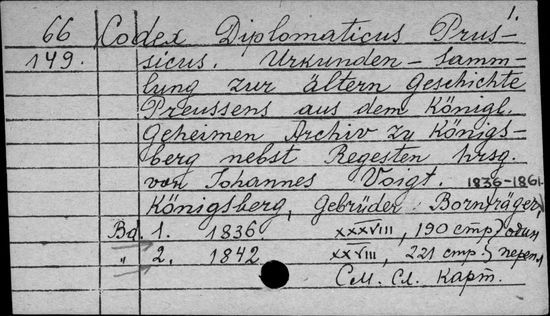 1.
66 Codex Diplomaticus Prus-
149. sicus. Urkunden-Samm-
lung zur ältern Geschichte
Preussens aus dem Königl.
Geheimen Archiv zu Königs-
berg nebst Regesten hrsg.
von Johannes Voigt. 1836-1861
Königsberg, Gebrüder Bornträger
Bd. 1. 1836 XXXVIII, 190 стр} один
" 2. 1842 XXVIII, 221 стр} переп
См. сл. карт.